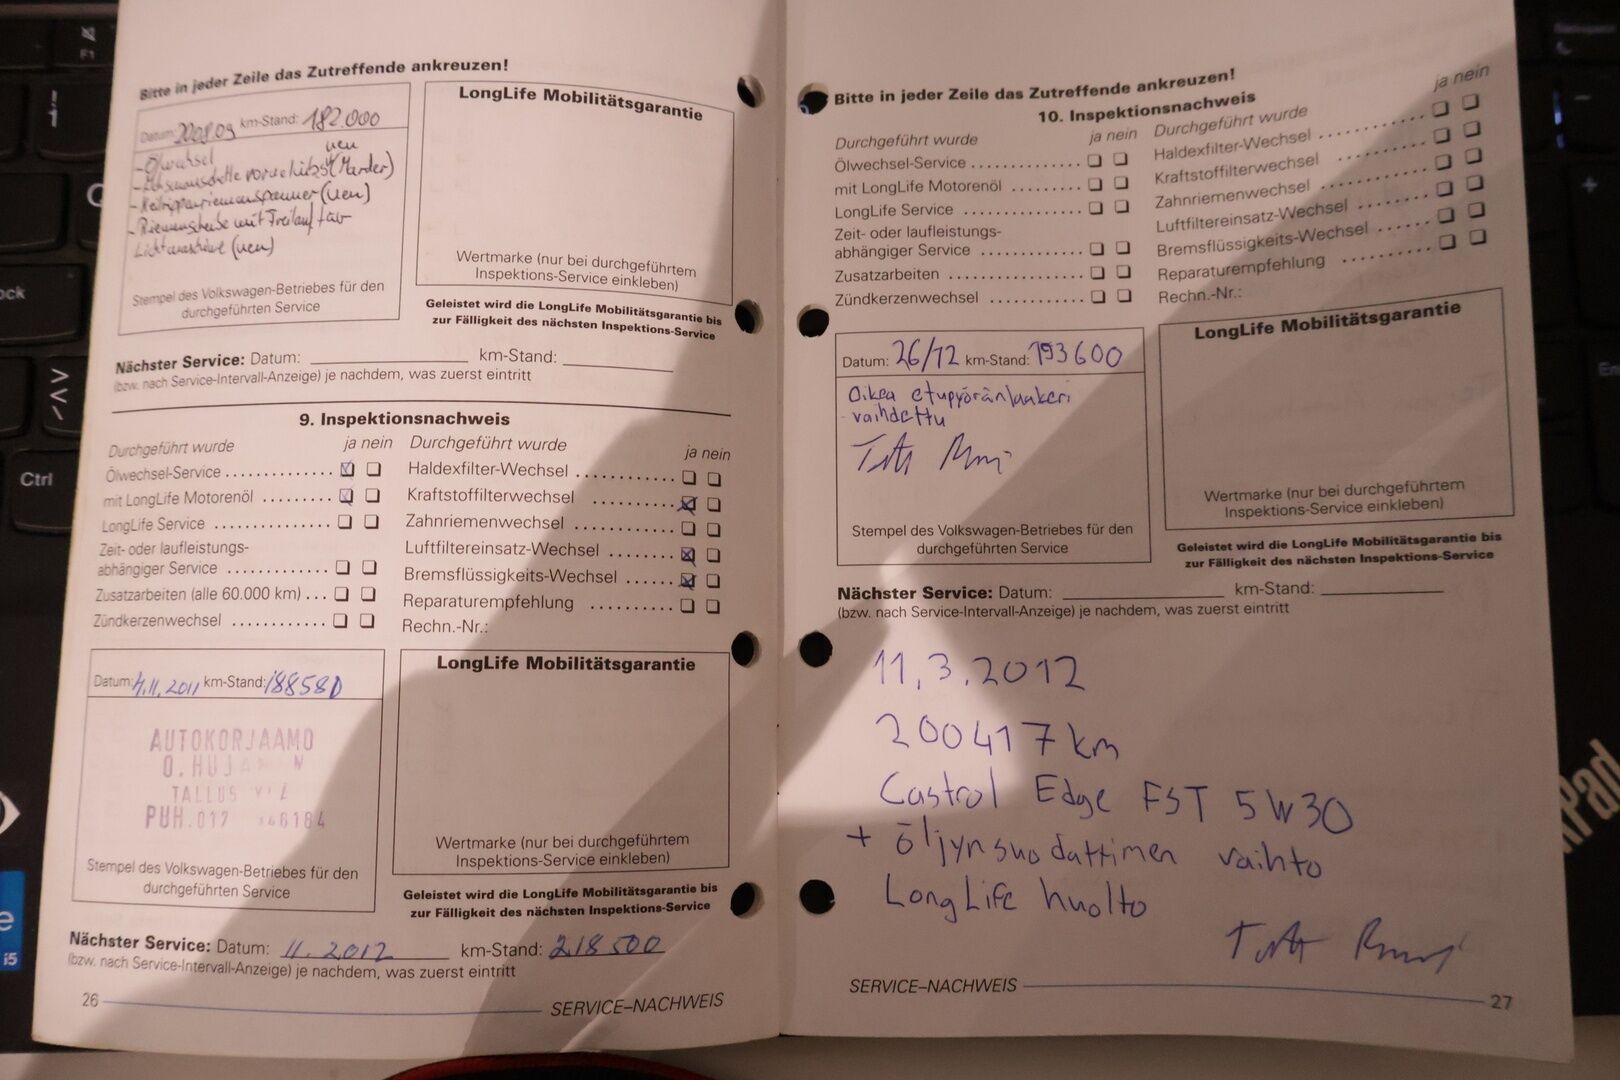 Bitte in jeder Zeile das Zutreffende ankreuzen!
Datum: 2008.09 km-Stand: 182.000
- Ölwechsel
neu
(Marder)
(neu)
- Riemenscheibe mit Freilauf für
Lichtmaschine (neu)
Stempel des Volkswagen-Betriebes für den
durchgeführten Service
LongLife Mobilitätsgarantie
Wertmarke (nur bei durchgeführtem
Inspektions-Service einkleben)
Geleistet wird die LongLife Mobilitätsgarantie bis
zur Fälligkeit des nächsten Inspektions-Service
Nächster Service: Datum: km-Stand:
(bzw. nach Service-Intervall-Anzeige) je nachdem, was zuerst eintritt
9. Inspektionsnachweis
Durchgeführt wurde ja nein
Ölwechsel-Service
mit LongLife Motorenöl
LongLife Service
Zeit- oder laufleistungs-
abhängiger Service
Zusatzarbeiten (alle 60.000 km)
Zündkerzenwechsel
Durchgeführt wurde ja nein
Haldexfilter-Wechsel
Kraftstoffilterwechsel
Zahnriemenwechsel
Luftfiltereinsatz-Wechsel
Bremsflüssigkeits-Wechsel
Reparaturempfehlung
Rechn.-Nr.:
Datum: 4.11.2011 km-Stand: 188580
AUTOKORJAAMO
Stempel des Volkswagen-Betriebes für den
durchgeführten Service
LongLife Mobilitätsgarantie
Wertmarke (nur bei durchgeführtem
Inspektions-Service einkleben)
Geleistet wird die LongLife Mobilitätsgarantie bis
zur Fälligkeit des nächsten Inspektions-Service
Nächster Service: Datum: 11.2012 km-Stand: 218500
(bzw. nach Service-Intervall-Anzeige) je nachdem, was zuerst eintritt
26 SERVICE–NACHWEIS
Bitte in jeder Zeile das Zutreffende ankreuzen!
10. Inspektionsnachweis
Durchgeführt wurde ja nein
Ölwechsel-Service
mit LongLife Motorenöl
LongLife Service
Zeit- oder laufleistungs-
abhängiger Service
Zusatzarbeiten
Zündkerzenwechsel
Durchgeführt wurde ja nein
Haldexfilter-Wechsel
Kraftstoffilterwechsel
Zahnriemenwechsel
Luftfiltereinsatz-Wechsel
Bremsflüssigkeits-Wechsel
Reparaturempfehlung
Rechn.-Nr.:
Datum: 26/12 km-Stand: 193600
Oikea etupyöränlaakeri
vaihdettu
Stempel des Volkswagen-Betriebes für den
durchgeführten Service
LongLife Mobilitätsgarantie
Wertmarke (nur bei durchgeführtem
Inspektions-Service einkleben)
Geleistet wird die LongLife Mobilitätsgarantie bis
zur Fälligkeit des nächsten Inspektions-Service
Nächster Service: Datum: km-Stand:
(bzw. nach Service-Intervall-Anzeige) je nachdem, was zuerst eintritt
11.3.2012
200417 km
Castrol Edge FST 5W30
+ öljynsuodattimen vaihto
LongLife huolto
SERVICE–NACHWEIS 27
F1
Ctrl
i5